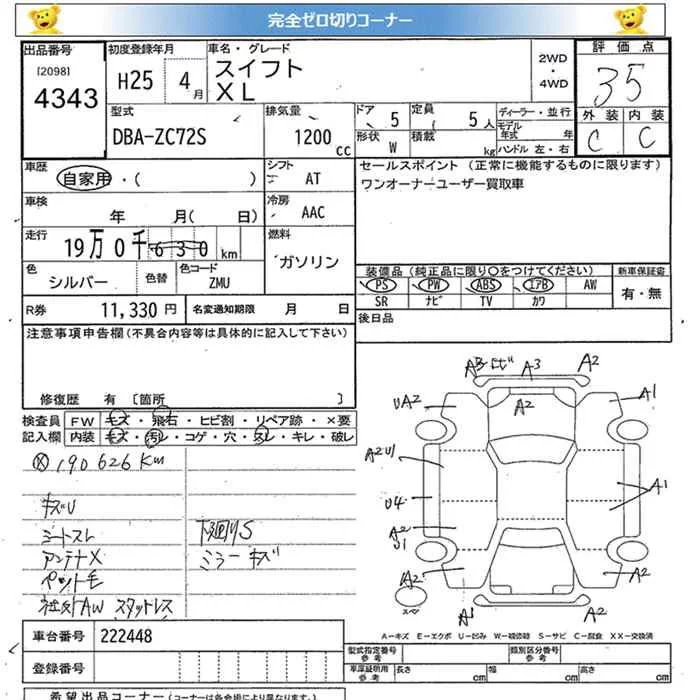 完全ゼロ切りコーナー
出品番号 初度登録年月 車名・グレード 評価点
[2098] H25 4月 スイフト 2WD・4WD 35
4343 XL
外装 内装
C C
型式 排気量 ドア 5 定員 5人 ディーラー・並行
DBA-ZC72S 1200cc 形状 W 積載 kg モデル年式 年
ハンドル 左・右
車歴 シフト セールスポイント (正常に機能するものに限ります)
自家用・( ) AT ワンオーナーユーザー買取車
車検 冷房
年 月( 日) AAC
走行 燃料
19万0千630km ガソリン
色 シルバー 色替 色コード ZMU
装備品 (純正品に限り○をつけてください) 新車保証書
PS PW ABS エアB AW 有・無
SR ナビ TV カワ
R券 11,330円 名変通知期限 月 日
後日品
注意事項申告欄(不具合内容等は具体的に記入して下さい)
修復歴 有 [箇所 ]
検査員 FW キズ・飛石・ヒビ割・リペア跡・×要
記入欄 内装 キズ・汚レ・コゲ・穴・スレ・キレ・破レ
190626Km
キズU
シートスレ 下廻りS
アンテナX ミラーキズ
ペット毛
社外AW スタットレス
A3 A2
UA2 A2 A1
A2U1
U4 A1
A2
U1
A2 A2
スペア
A1
A-キズ E-エクボ U-凹み W-補修跡 S-サビ C-腐食 XX-交換済
車台番号 222448
型式指定番号 参考 類別区分番号 参考
登録番号
車庫証明用 参考 長さ cm 幅 cm 高さ cm
希望出品コーナー (コーナーは各会場により異なります。)